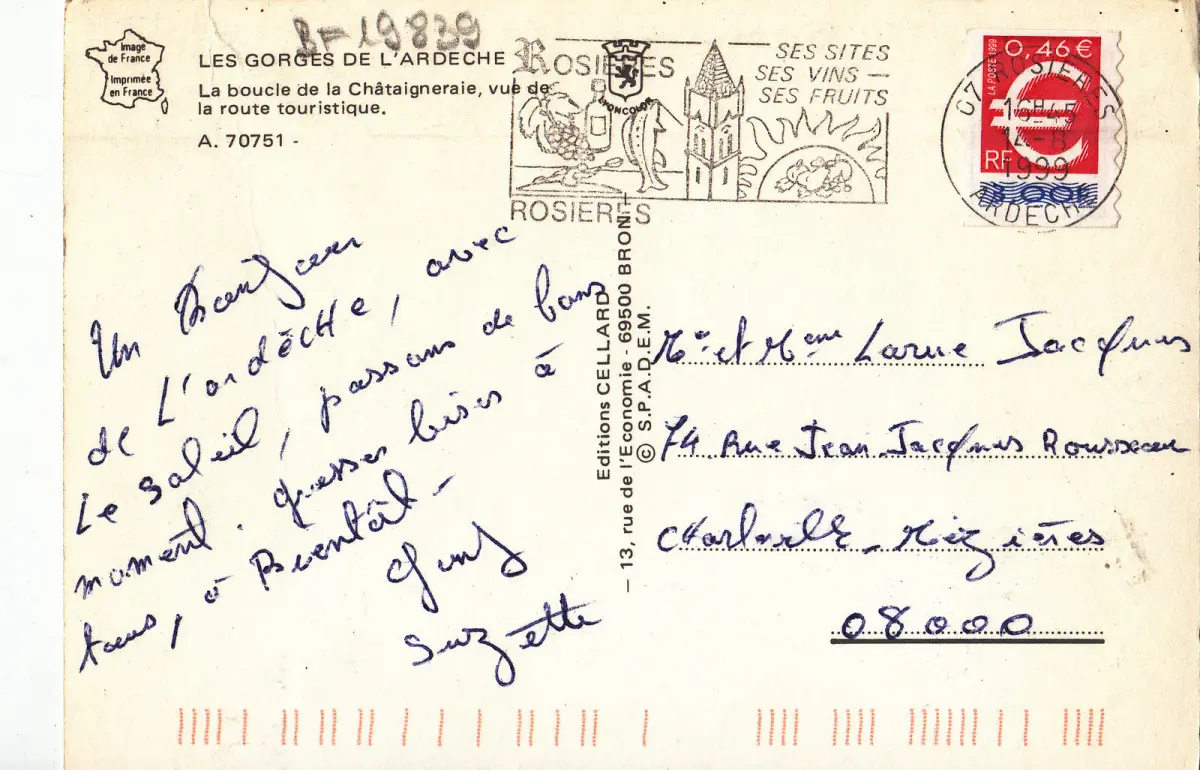 Image
de France
Imprimée
en France
R-19839
LES GORGES DE L'ARDECHE
La boucle de la Châtaigneraie, vue de
la route touristique.
A. 70751 -
ROSIERES
COMBICOLOR
SES SITES
SES VINS —
SES FRUITS
ROSIERES
LA POSTE 1999
0,46 €
RF
3,00F
07 ROSIERES
16H-45
14-8
1999
ARDECHE
Un Bonjour
de L'ardèCHe, avec
Le Soleil, passons de bons
moment. grosses bises à
tous, à Bientôt -
Guy
Suzette
Editions CELLARD
— 13, rue de l'Economie - 69500 BRON —
© S.P.A.D.E.M.
Mr et Mme Larue Jacques
74 Rue Jean Jacques Rousseau
CHarleville - Mézières
08000